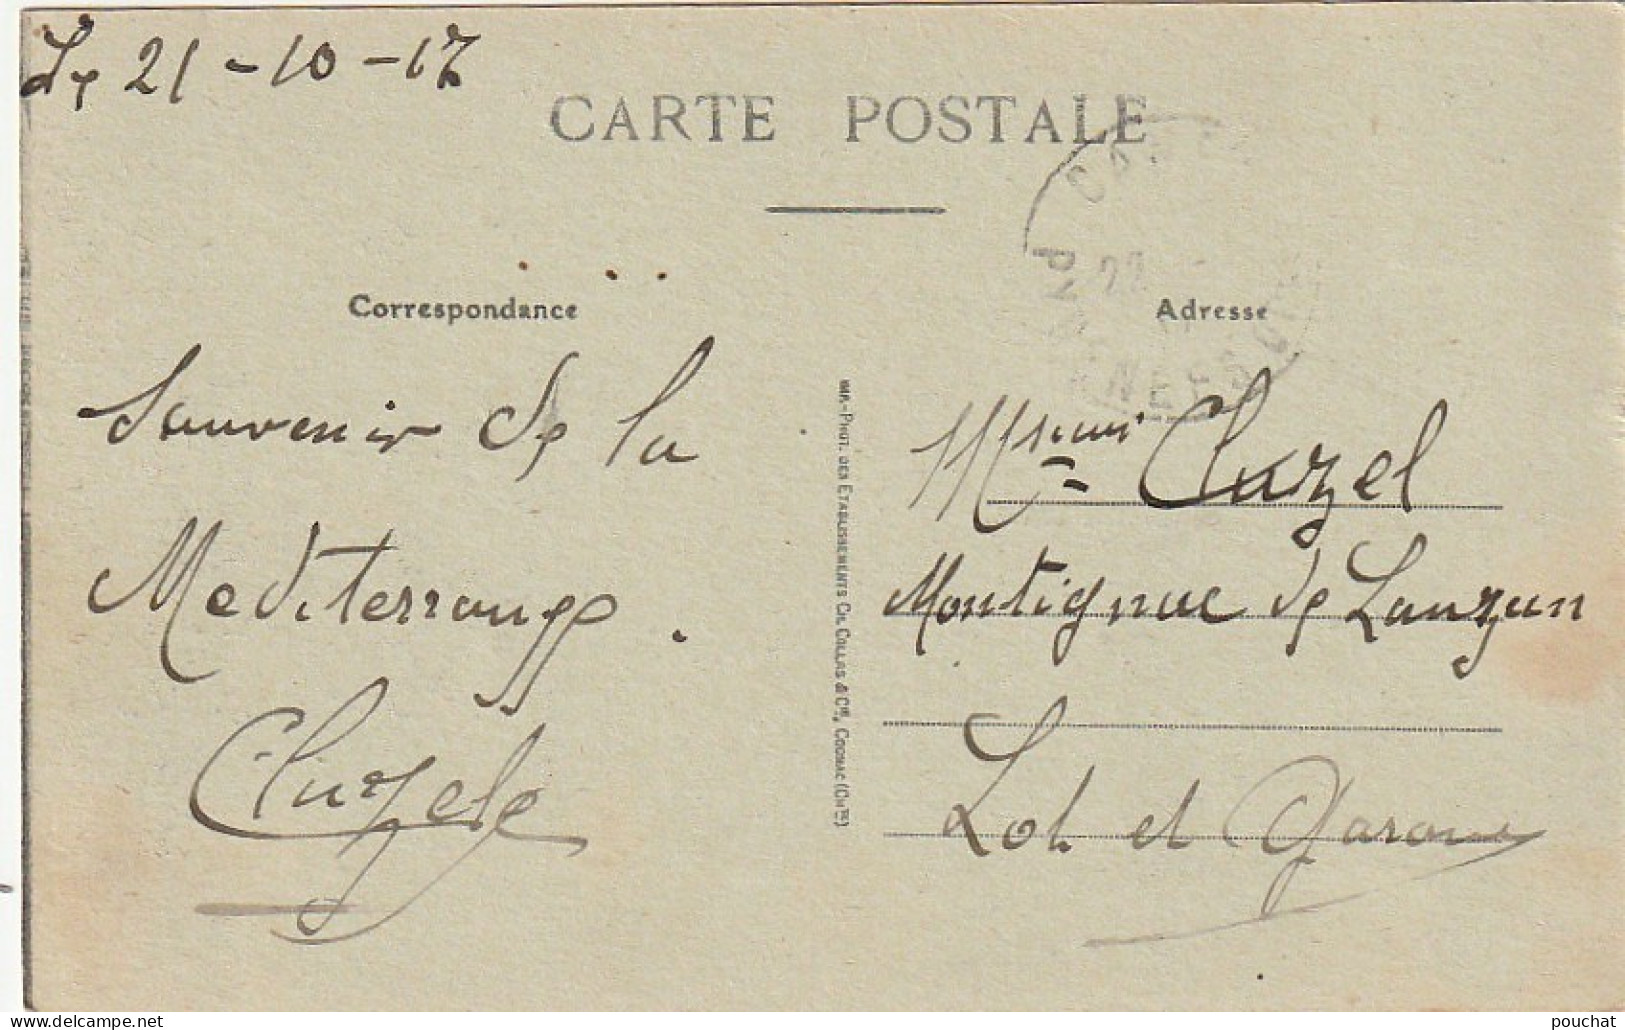 Le 21-10-17
CARTE POSTALE
Correspondance
Souvenir de la
Mediterrannee.
Cluzel
IMP.-PHOT. DES ETABLISSEMENTS CH. COLLAS & Cie, COGNAC (Chte)
Adresse
Cluzel
Montignac de Lauzun
Lot et Garonne
22
www.delcampe.net
pouchat